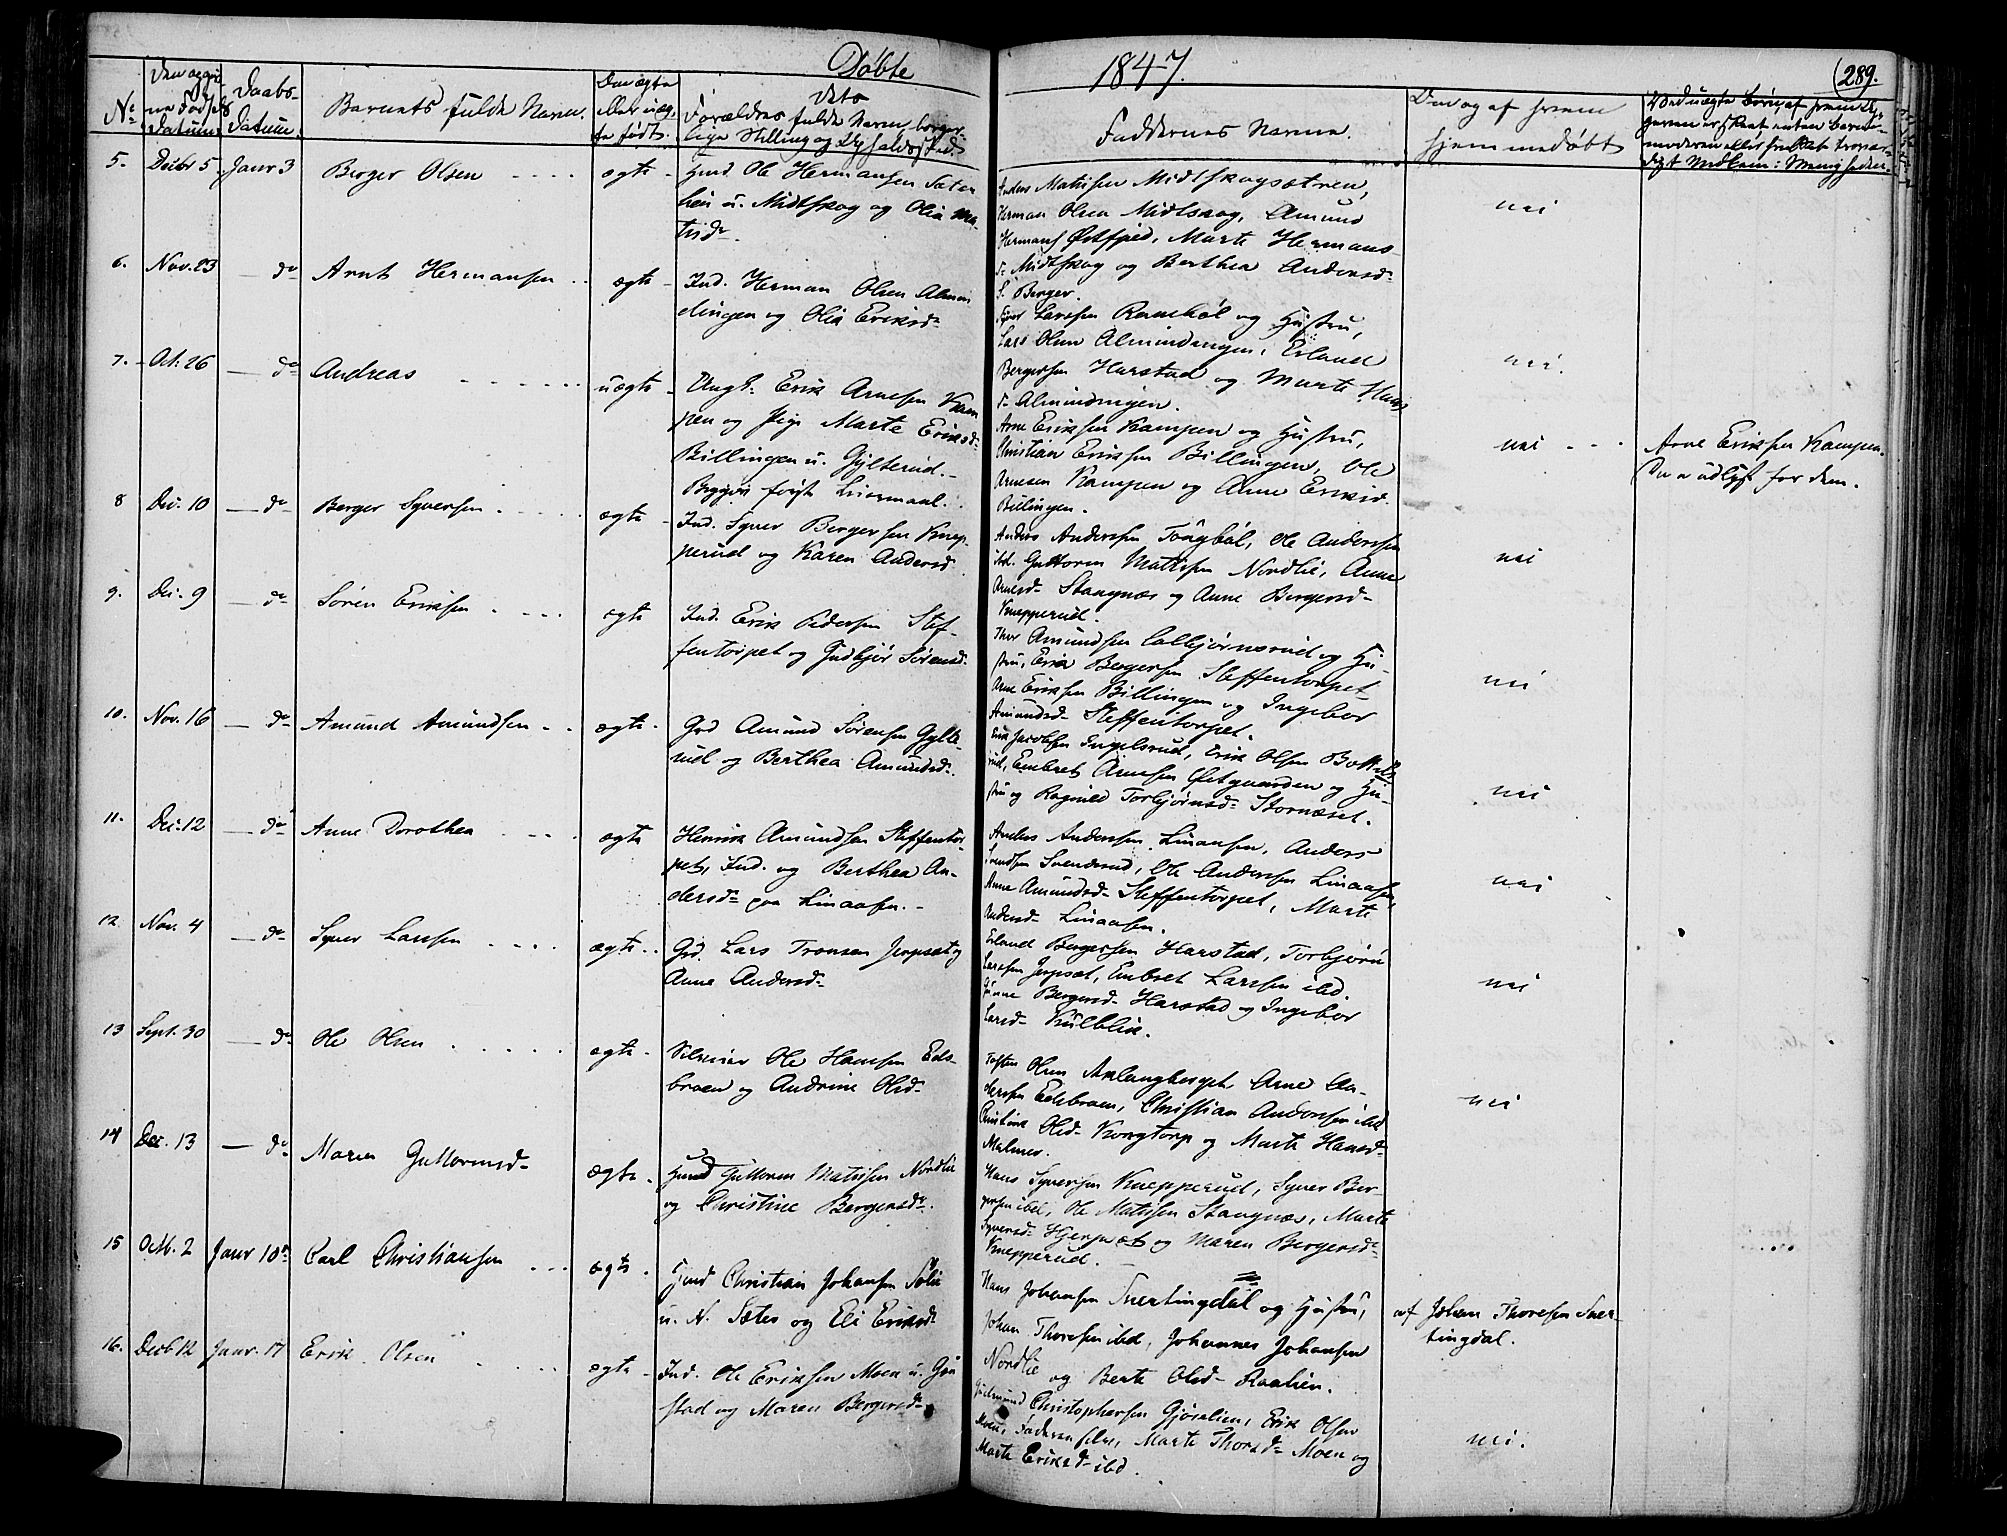 Døbte
1847.
289.
No
Fødsels Datum
Daabs-Datum
Barnets fulde Navn.
Forældres fulde Navn, borger-
lige Stilling og
Faddernes Navne.
hjemmedøbt
5. Decbr 5 Janr 3 Berger Olsen ægte Hmd Ole Hermansen
u. Midtskog og Olia Ma-
tisd-
Anders Matisen Midtskogsætren,
Herman Olsen Midtskog, Amund
Hermans Østhied, Marte Hermans-
d- Midtskog og Berthea Andersd-
S. Berger.
nei
6. Nov. 23 — do Arnt Hermansen ægte Ind. Herman Olsen Almin
dingen og Olia Eriksd-
Larsen Ramshøl og Hustru,
Lars Olsen Almindingen, Erland
Bergersen Harstad og Marte Hans
d- Almindingen.
nei.
7. Oct. 26 — do Andreas uægte Ungk. Erik Arnesen Kam
pen og Pige Marte Eriksd-
Billingen u. Gylterud.
Begges første Leiermaal.
Arne Eriksen Kampen og Hustru,
Christian Eriksen Billingen, Ole
Arnesen Kampen og Anne Eriksd-
Billingen.
nei
Arne Eriksen Kampen.
De er udlyst for dem.
8 Dec. 10 — do Berger Syversen ægte Ind. Syver Bergersen Knep-
perud og Karen Andersd
Anders Andersen Tøngbøl, Ole Andersen
ibd. Guttorm Matisen Nordlie, Anne
Arnesd- Stangnæs og Anne Bergersd-
Knepperud.
nei
9. Dec. 9 — do Søren Eriksen ægte Ind. Erik Pedersen Stef-
fentorpet og Gudbjør Sørensd-
Thor Amundsen Colbjørnsrud og Hu-
stru, Erik Bergersen Steffentorpet
Arne Eriksen Billingen og Ingebor
Amundsd- Steffentorpet.
nei
10. Nov. 16 — do Amund Amundsen ægte Grd Amund Sørensen Gylte-
rud og Berthea Amundsd-.
Erik Jacobsen Ingelsrud, Erik Olsen Bottils
rud, Embret Arnesen Østgaarden og Hu-
stru og Ragnild Torbjørnsd- Stornæset.
nei
11. Dec. 12 — do Anne Dorothea ægte Henrik Amundsen Steffentor-
pet, Ind. og Berthea An-
dersd- paa Linaasen.
Anders Andersen Linaasen, Anders
Svendsen Svenderud, Ole Andersen Linaasen,
Anne Amundsd- Steffentorpet, Marte
Andersd- Linaasen.
nei
12 Nov. 4 — do Syver Larsen ægte Grd. Lars Tronsen Jerpset og
Anne Andersd-
Erland Bergersen Harstad, Torbjørn
Larsen Jerpset, Embret Larsen ibd.
Gunne Bergersd- Harstad og Ingebor
Larsd- Kulblik.
nei
13 Sept. 30 — do Ole Olsen ægte Selveier Ole Hansen Eds-
braen og Andrine Olsd-
Tosten Olsen Aklangberget, Arne An-
dersen Edsbraen, Christian Andersen ibd
Christine Olsd- Kongtorp og Marte Hansd-
Malmer.
nei
14 Dec. 13 — do Maren Guttormsd- ægte Hmd Guttorm Matisen Nordlie
og Christine Bergersd-.
Hans Syversen Knepperud, Syver Ber-
gersen ibd, Ole Matisen Stangnæs, Marte
Syversd- Hjerpset og Maren Bergersd-
Knepperud.
15 Octb. 2 Janr 10de Carl Christiansen ægte Hmd Christian Johansen
u. N. Sæter og Eli Eriksd-
Hans Johansen Snertingdal og Hustru,
Johan Thoresen ibd, Johannes Johansen
Nordlie og Berte Olsd- Raalien.
af Johan Thoresen Sner-
tingdal.
16. Decb 12 Janr. 17 Erik Olsen ægte Ind. Ole Eriksen Moen u. Gau
stad og Maren Bergersd-
Gudmund Christophersen Gjøralien, Erik Olsen
Moen, Faderen selv, Marte Thorsd- Moen og
Marte Eriksd- ibd.
nei.